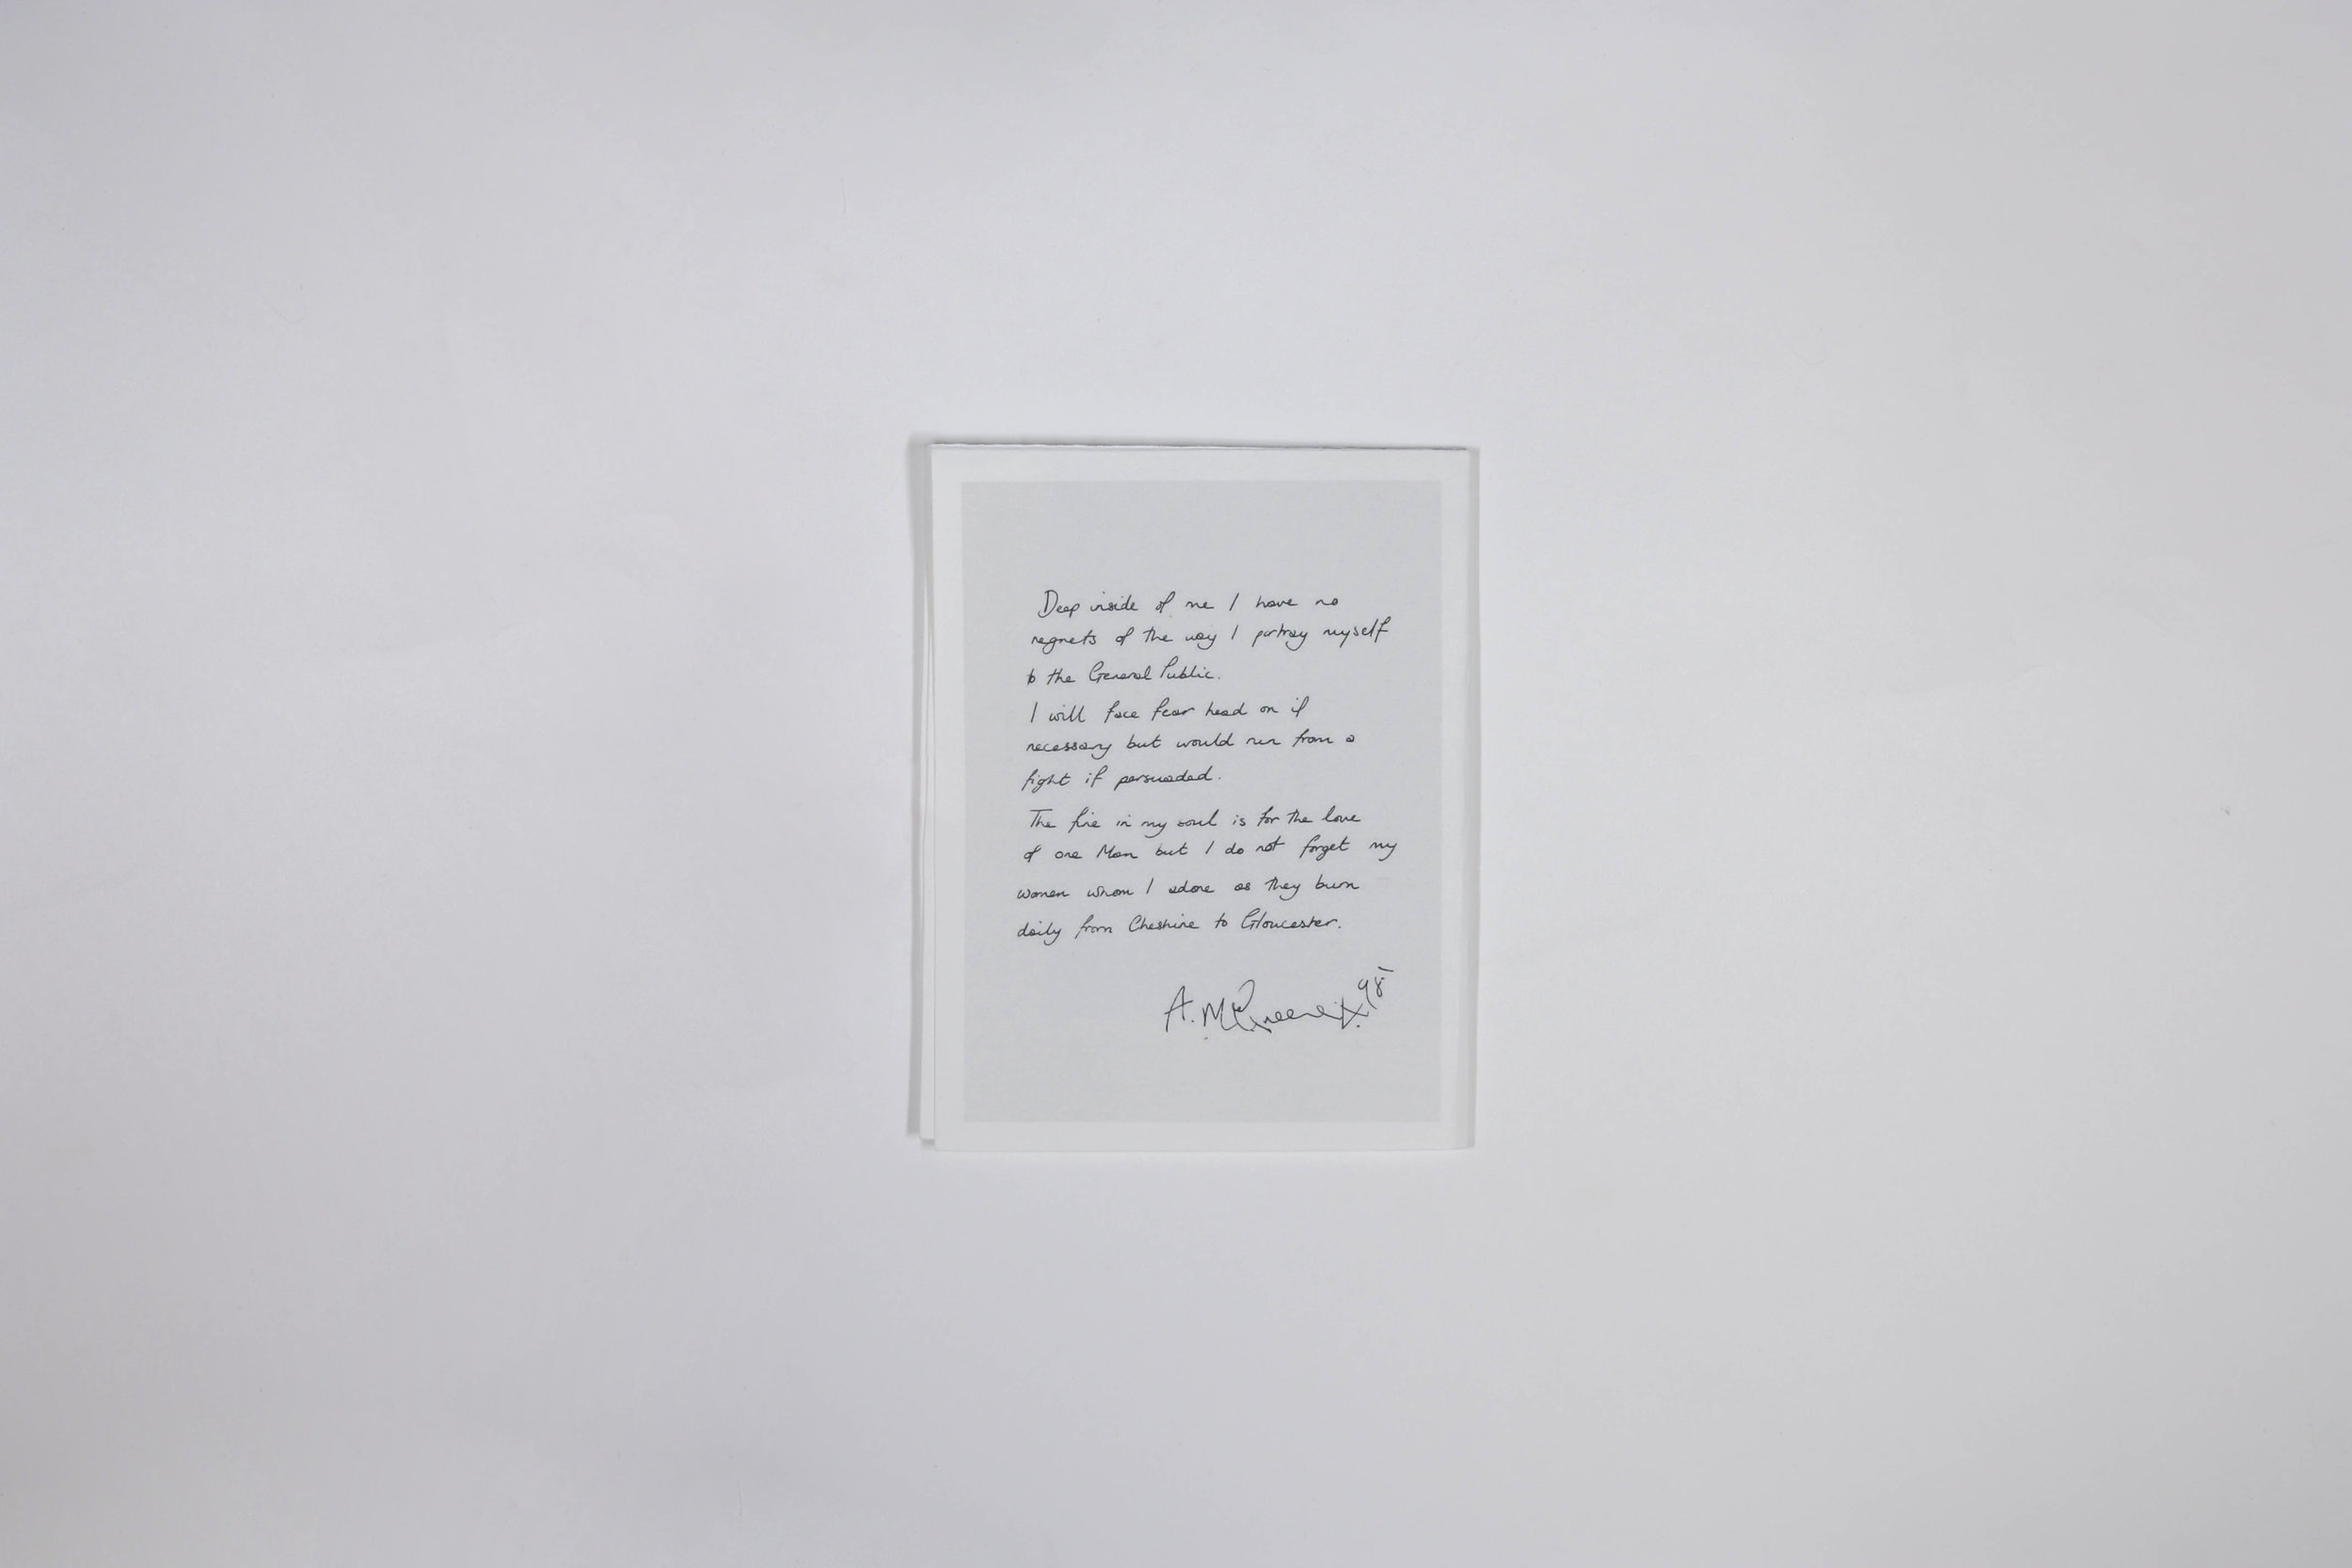 Deep inside of me I have no
regrets of the way I portray myself
to the General Public.
I will face fear head on if
necessary but would run from a
fight if persuaded.
The fire in my soul is for the love
of one Man but I do not forget my
women whom I adore as they burn
daily from Cheshire to Gloucester.
A. McQueen 98